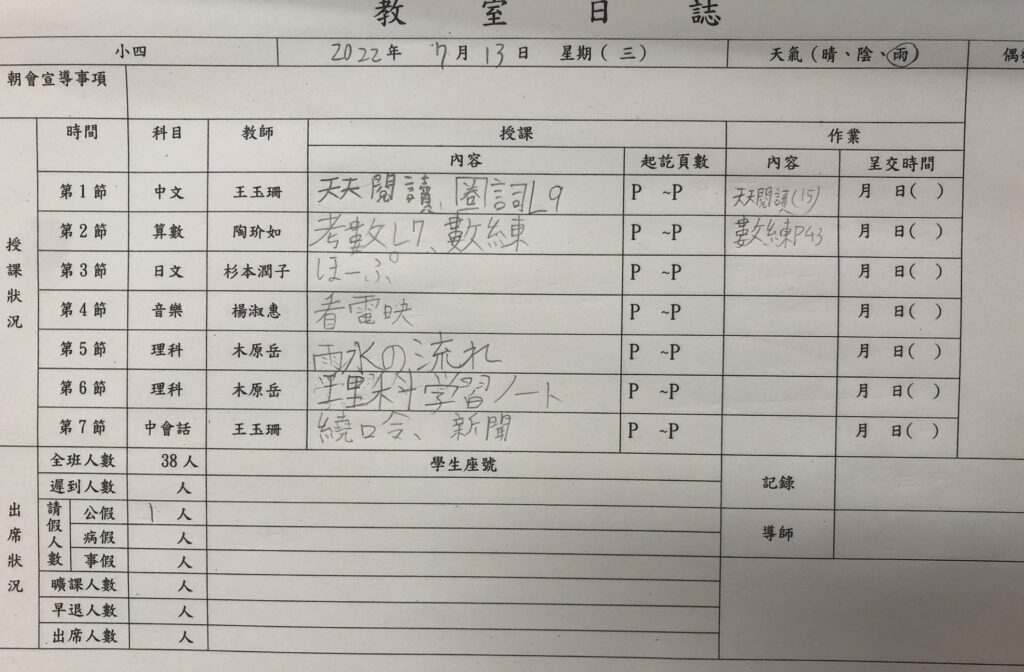 教室日誌
小四 2022年 7月13日 星期(三) 天氣(晴、陰、雨)
朝會宣導事項
授課狀況 時間 科目 教師 授課 作業
內容 起訖頁數 內容 呈交時間
第1節 中文 王玉珊 天天閱讀、圈詞L9 P ~P 天天閱讀(15) 月 日( )
第2節 算數 陶玠如 考數L7、數練 P ~P 數練P43 月 日( )
第3節 日文 杉本潤子 ほーぷ P ~P 月 日( )
第4節 音樂 楊淑惠 看電映 P ~P 月 日( )
第5節 理科 木原岳 雨水の流れ P ~P 月 日( )
第6節 理科 木原岳 理科学習ノート P ~P 月 日( )
第7節 中會話 王玉珊 繞口令、新聞 P ~P 月 日( )
出席狀況 全班人數 38人 學生座號 記錄
遲到人數 人
請假人數 公假 1人 導師
病假 人
事假 人
曠課人數 人
早退人數 人
出席人數 人